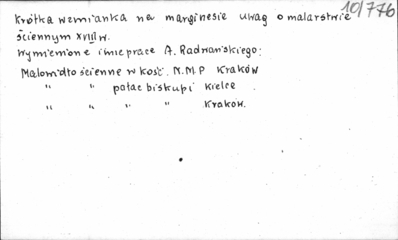 10/776
Krótka wzmianka na marginesie uwag o malarstwie
ściennym XVIII w.
Wymienione inne prace A. Radwańskiego:
Malowidło ścienne w kość. N.M.P Kraków
" " pałac biskupi Kielce
" " " " Kraków.